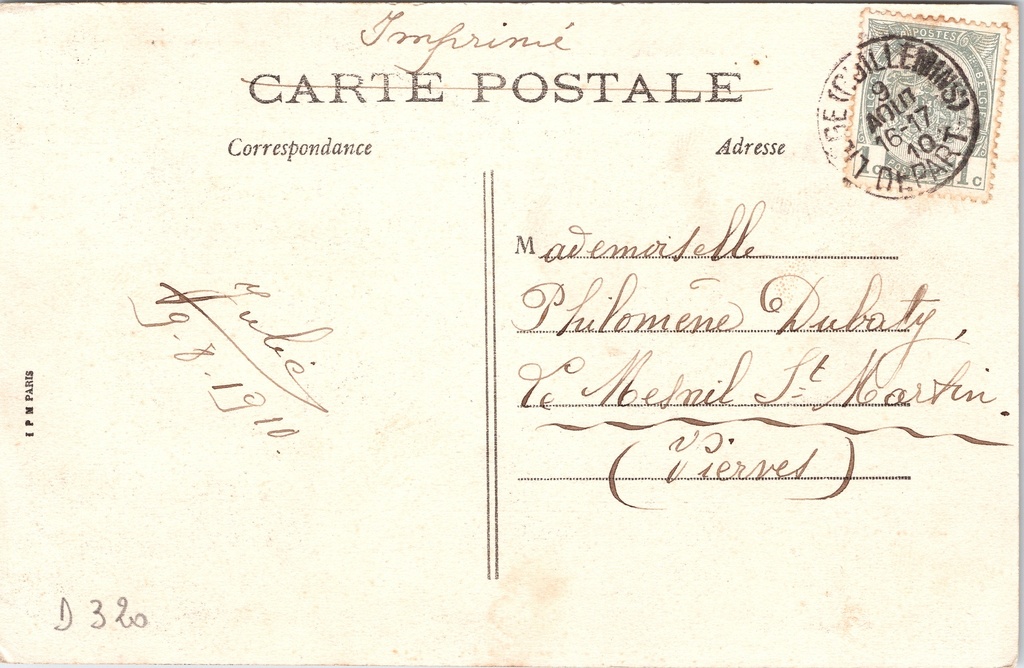 Imprimé
CARTE POSTALE
Correspondance
Adresse
POSTES
BELGIE
1c
1c
LIEGE (GUILLEMINS)
9
AOUT
16-17
10
DEPART
Mademoiselle
Philomène Dubaty,
Le Mesnil St Martin.
(Vierves)
Julie
9.8.1910.
I P M PARIS
D 320